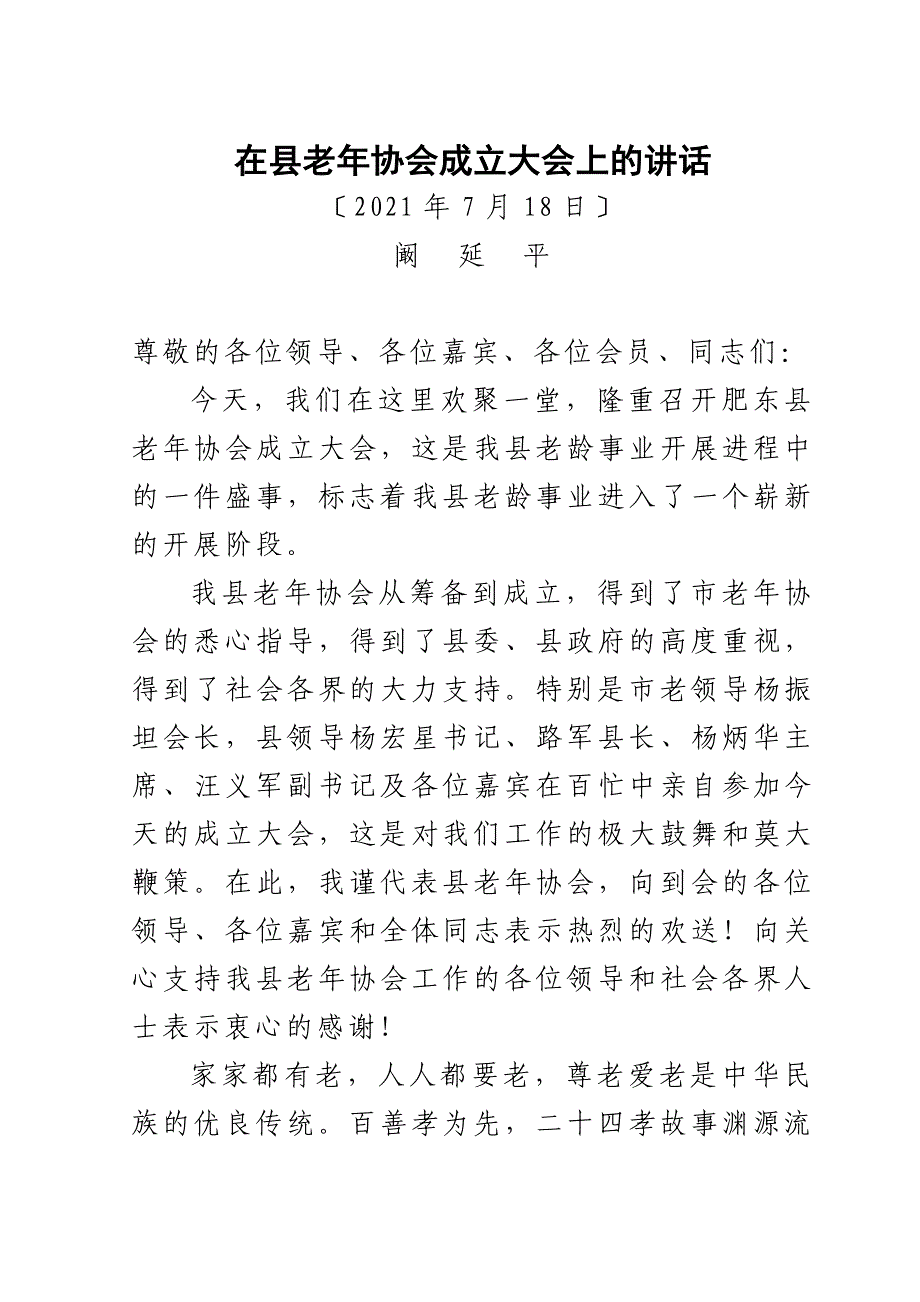 在县老年协会成立大会上的讲话
〔2021年7月18日〕
阚 延 平
尊敬的各位领导、各位嘉宾、各位会员、同志们:
今天，我们在这里欢聚一堂，隆重召开肥东县
老年协会成立大会，这是我县老龄事业开展进程中
的一件盛事，标志着我县老龄事业进入了一个崭新
的开展阶段。
我县老年协会从筹备到成立，得到了市老年协
会的悉心指导，得到了县委、县政府的高度重视，
得到了社会各界的大力支持。特别是市老领导杨振
坦会长，县领导杨宏星书记、路军县长、杨炳华主
席、汪义军副书记及各位嘉宾在百忙中亲自参加今
天的成立大会，这是对我们工作的极大鼓舞和莫大
鞭策。在此，我谨代表县老年协会，向到会的各位
领导、各位嘉宾和全体同志表示热烈的欢送！向关
心支持我县老年协会工作的各位领导和社会各界人
士表示衷心的感谢！
家家都有老，人人都要老，尊老爱老是中华民
族的优良传统。百善孝为先，二十四孝故事渊源流